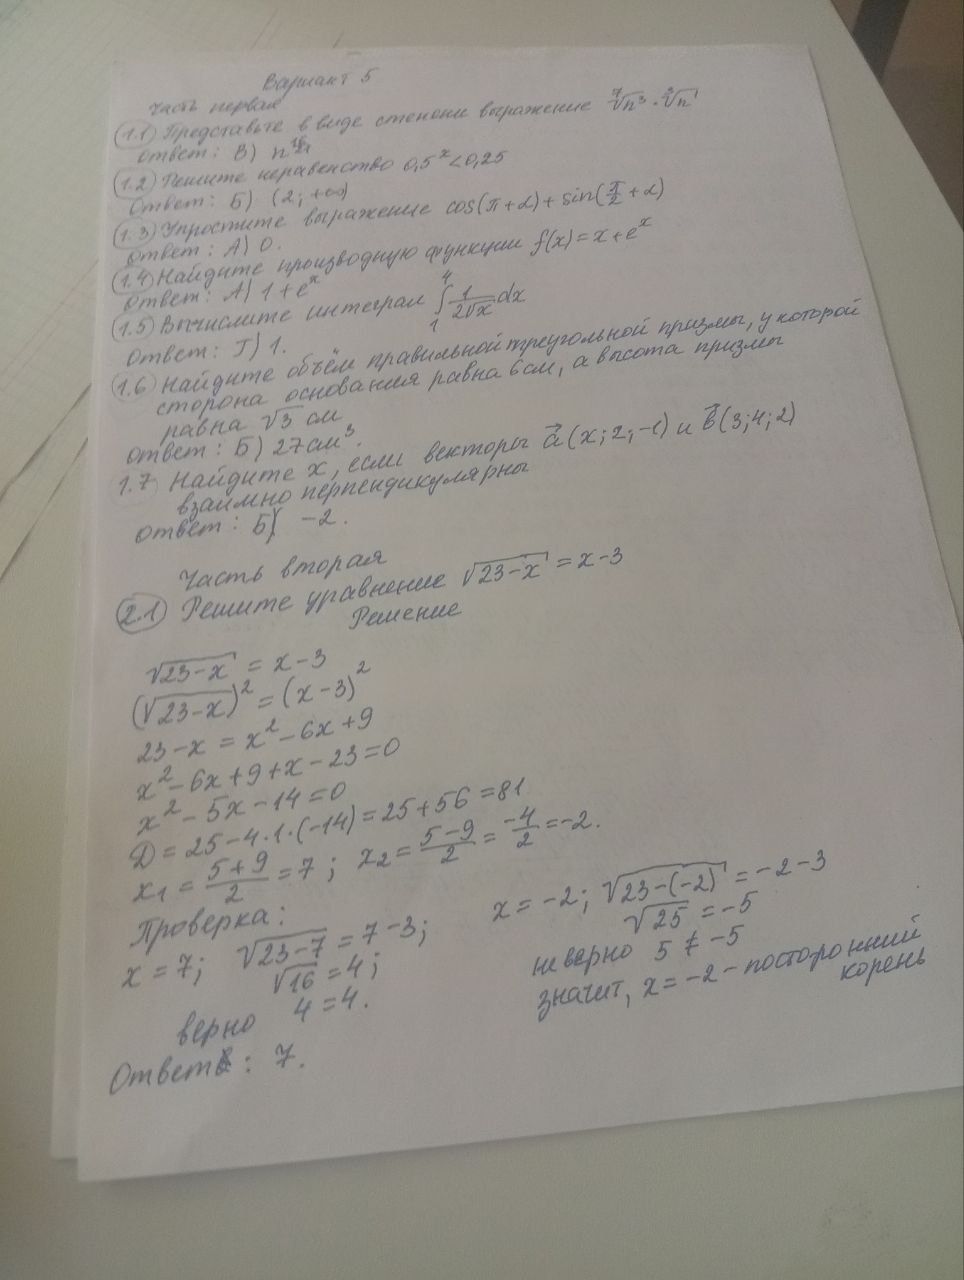 Вариант 5
Часть первая
1.1 Представьте в виде степени выражение ⁷√n³ · ³√n
Ответ: В) n^(16/21)
1.2 Решите неравенство 0,5^x < 0,25
Ответ: Б) (2; +∞)
1.3 Упростите выражение cos(π+α)+sin(π/2+α)
Ответ: А) 0.
1.4 Найдите производную функции f(x)=x+e^x
Ответ: А) 1+e^x
1.5 Вычислите интеграл ∫₁⁴ 1/(2√x) dx
Ответ: Г) 1.
1.6 Найдите объём правильной треугольной призмы, у которой
сторона основания равна 6 см, а высота призмы
равна √3 см
Ответ: Б) 27 см³.
1.7 Найдите x, если векторы a⃗ (x; 2; -1) и b⃗ (3; 4; 2)
взаимно перпендикулярны
Ответ: Б) -2.
Часть вторая
2.1 Решите уравнение √(23-x) = x-3
Решение
√(23-x) = x-3
(√(23-x))² = (x-3)²
23-x = x²-6x+9
x²-6x+9+x-23=0
x²-5x-14=0
D = 25-4·1·(-14) = 25+56 = 81
x₁ = (5+9)/2 = 7; x₂ = (5-9)/2 = -4/2 = -2.
Проверка:
x = 7; √(23-7) = 7-3;
√16 = 4;
верно 4 = 4.
x = -2; √(23-(-2)) = -2-3
√25 = -5
неверно 5 ≠ -5
значит, x = -2 - посторонний
корень
Ответ: 7.